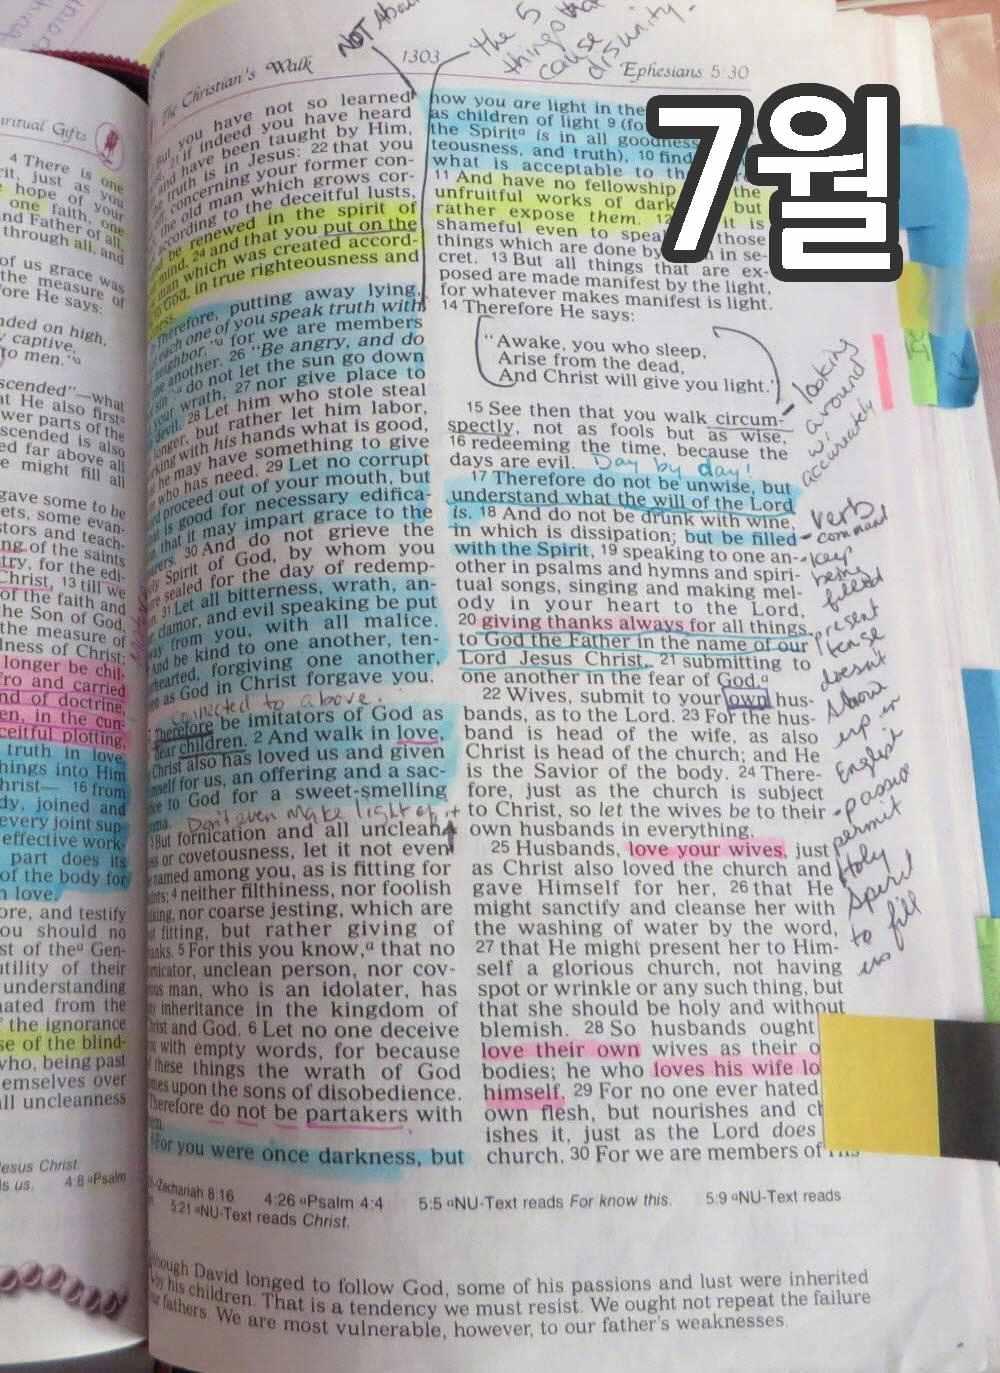 NOT
the 5
things that
cause
disunity.
The Christian's Walk
1303
Ephesians 5:30
7월
iritual Gifts
4 There is one
rit, just as you
hope of your
one faith, one
nd Father of all,
through all, and
of us grace was
the measure of
fore He says:
nded on high,
captive,
to men."a
scended"—what
at He also first
wer parts of the
scended is also
ed far above all
e might fill all
gave some to be
ets, some evan-
stors and teach-
ng of the saints
try, for the edi-
Christ, 13 till we
of the faith and
he Son of God,
the measure of
lness of Christ;
longer be chil-
fro and carried
nd of doctrine,
en, in the cun-
ceitful plotting,
truth in love,
hings into Him
hrist— 16 from
dy, joined and
every joint sup-
effective work-
part does its
of the body for
n love.
ore, and testify
ou should no
st of the Gen-
utility of their
understanding
nated from the
the ignorance
se of the blind-
who, being past
emselves over
all uncleanness
esus Christ.
ls us. 4:8 aPsalm
you have not so learned
21 if indeed you have heard
and have been taught by Him,
truth is in Jesus: 22 that you
concerning your former con-
the old man which grows cor-
according to the deceitful lusts,
be renewed in the spirit of
mind, 24 and that you put on the
man which was created accord-
to God, in true righteousness and
Therefore, putting away lying,
each one of you speak truth with
neighbor," for we are members
one another. 26 "Be angry, and do
do not let the sun go down
your wrath, 27 nor give place to
devil. 28 Let him who stole steal
longer, but rather let him labor,
working with his hands what is good,
he may have something to give
who has need. 29 Let no corrupt
proceed out of your mouth, but
is good for necessary edifica-
that it may impart grace to the
30 And do not grieve the
Spirit of God, by whom you
sealed for the day of redemp-
31 Let all bitterness, wrath, an-
clamor, and evil speaking be put
away from you, with all malice.
And be kind to one another, ten-
hearted, forgiving one another,
as God in Christ forgave you.
connected to above.
Therefore be imitators of God as
dear children. 2 And walk in love,
Christ also has loved us and given
Himself for us, an offering and a sac-
to God for a sweet-smelling
Don't even make light of it
But fornication and all unclean
or covetousness, let it not even
named among you, as is fitting for
4 neither filthiness, nor foolish
nor coarse jesting, which are
fitting, but rather giving of
5 For this you know,a that no
unclean person, nor cov-
man, who is an idolater, has
inheritance in the kingdom of
Christ and God. 6 Let no one deceive
with empty words, for because
these things the wrath of God
comes upon the sons of disobedience.
Therefore do not be partakers with
For you were once darkness, but
now you are light in the
as children of light 9 (fo
the Spirita is in all goodness
teousness, and truth), 10 find
what is acceptable to th
11 And have no fellowship the
unfruitful works of dark but
rather expose them. 12 it is
shameful even to spea those
things which are done by in se-
cret. 13 But all things that are ex-
posed are made manifest by the light,
for whatever makes manifest is light.
14 Therefore He says:
"Awake, you who sleep,
Arise from the dead,
And Christ will give you light."
15 See then that you walk circum-
spectly, not as fools but as wise,
16 redeeming the time, because the
days are evil. Day by day!
17 Therefore do not be unwise, but
understand what the will of the Lord
is. 18 And do not be drunk with wine,
in which is dissipation; but be filled
with the Spirit, 19 speaking to one an-
other in psalms and hymns and spiri-
tual songs, singing and making mel-
ody in your heart to the Lord,
20 giving thanks always for all things
to God the Father in the name of our
Lord Jesus Christ, 21 submitting to
one another in the fear of God.a
22 Wives, submit to your own hus-
bands, as to the Lord. 23 For the hus-
band is head of the wife, as also
Christ is head of the church; and He
is the Savior of the body. 24 There-
fore, just as the church is subject
to Christ, so let the wives be to their
own husbands in everything.
25 Husbands, love your wives, just
as Christ also loved the church and
gave Himself for her, 26 that He
might sanctify and cleanse her with
the washing of water by the word,
27 that He might present her to Him-
self a glorious church, not having
spot or wrinkle or any such thing, but
that she should be holy and without
blemish. 28 So husbands ought
love their own wives as their o
bodies; he who loves his wife lo
himself. 29 For no one ever hated
own flesh, but nourishes and ch
ishes it, just as the Lord does
church. 30 For we are members of
looking
around
w
accurately
verb
- command
- keep
being
filled
present
tense
doesn't
show
up in
English
- passive
permit
Holy
Spirit
to fill
us
Zechariah 8:16 4:26 aPsalm 4:4 5:5 aNU-Text reads For know this. 5:9 aNU-Text reads
5:21 aNU-Text reads Christ.
though David longed to follow God, some of his passions and lust were inherited
by his children. That is a tendency we must resist. We ought not repeat the failure
fathers. We are most vulnerable, however, to our father's weaknesses.